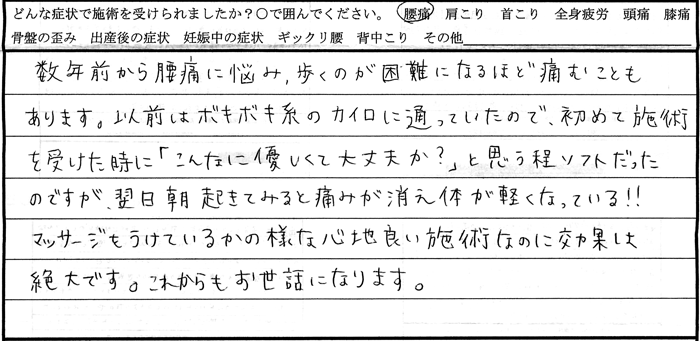 どんな症状で施術を受けられましたか？〇で囲んでください。 腰痛 肩こり 首こり 全身疲労 頭痛 膝痛
骨盤の歪み 出産後の症状 妊娠中の症状 ギックリ腰 背中こり その他
数年前から腰痛に悩み、歩くのが困難になるほど痛むことも
あります。以前はボキボキ系のカイロに通っていたので、初めて施術
を受けた時に「こんなに優しくて大丈夫か？」と思う程ソフトだった
のですが、翌日朝起きてみると痛みが消え体が軽くなっている!!
マッサージをうけているかの様な心地良い施術なのに効果は
絶大です。これからもお世話になります。